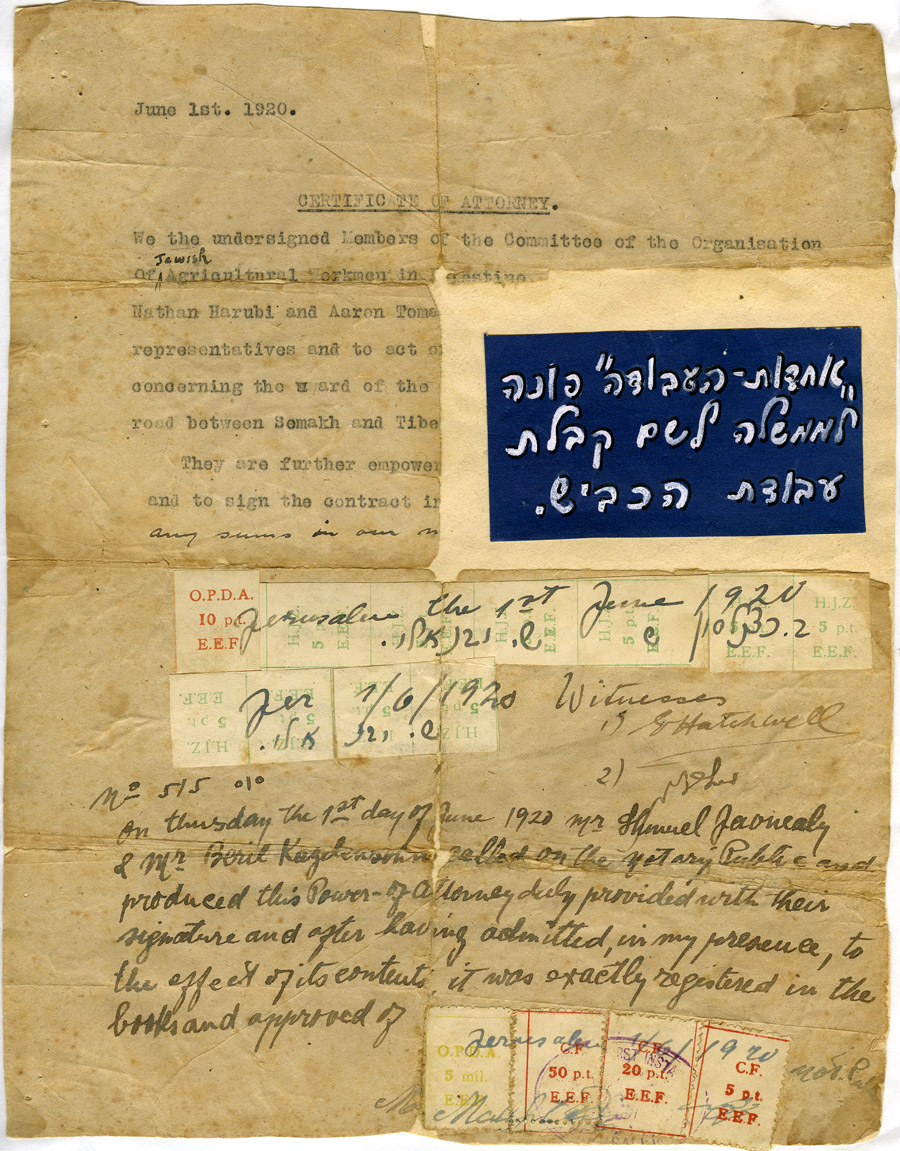 June 1st. 1920.
CERTIFICATE OF ATTORNEY.
We the undersigned Members of the Committee of the Organisation
Jewish
Of Agricultural Workmen in Palestine.
Nathan Harubi and Aaron Toma
representatives and to act o
concerning the ward of the
road between Semakh and Tibe
They are further empower
and to sign the contract in
any sums in our n
„אחדות-העבודה" פונה
לממשלה לשם קבלת
עבודת הכביש.
O.P.D.A.
10 p.t.
E.E.F.
H.J.Z.
5 p.t.
E.E.F.
H.J.Z.
5 p.t.
E.E.F.
H.J.Z.
5 p.t.
E.E.F.
Jerusalem the 1st June 1920
ב. כצנלסון
ש. יבנאלי.
E.E.F.
5 pt
H.J.Z.
Jer 1/6/1920
ש. יבנ אלי.
Witnesses
1) Hatchwell
2)
No 515
On thursday the 1st day of June 1920 Mr Shmuel Javnealy
& Mr Beril Kazdenson called on the notary Public and
produced this Power-of Attorney duly provided with their
signature and after having admitted, in my presence, to
the effect of its contents, it was exactly registered in the
books and approved of
Jerusalem 1/6/1920
O.P.D.A.
5 mil.
E.E.F.
C.F.
50 p.t.
E.E.F.
C.F.
20 p.t.
E.E.F.
C.F.
5 p.t.
E.E.F.